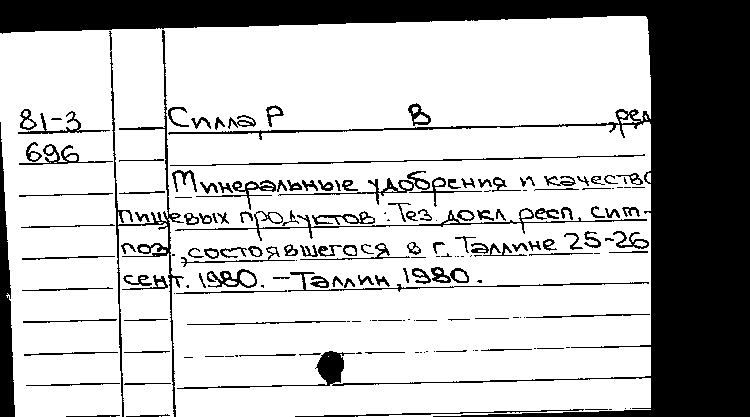 81-3 Силла, Р В , ред
696
Минеральные удобрения и качество
пищевых продуктов: Тез. докл. респ. сим-
поз., состоявшегося в г. Таллине 25-26
сент. 1980. - Таллин, 1980.